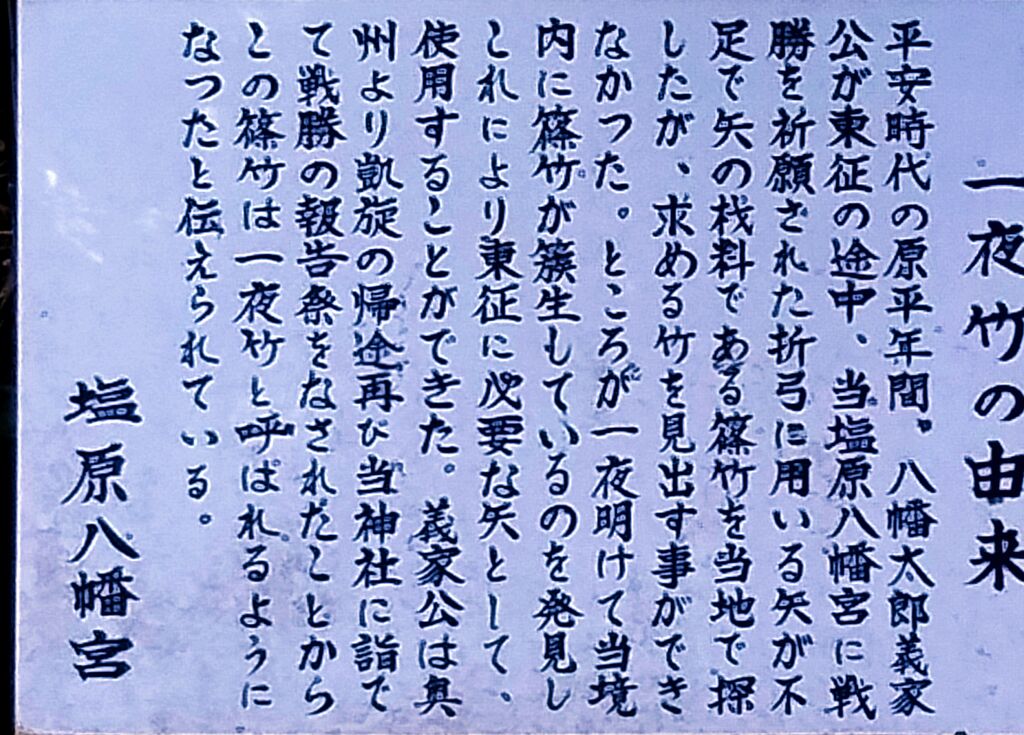 一夜竹の由来
平安時代の原平年間。八幡太郎義家
公が東征の途中、当塩原八幡宮に戦
勝を祈願された折弓に用いる矢が不
足で矢の材料である篠竹を当地で探
したが、求める竹を見出す事ができ
なかつた。ところが一夜明けて当境
内に篠竹が簇生しているのを発見し
これにより東征に必要な矢として、
使用することができた。義家公は奥
州より凱旋の帰途再び当神社に詣で
て戦勝の報告祭をなされたことから
この篠竹は一夜竹と呼ばれるように
なつたと伝えられている。
塩原八幡宮